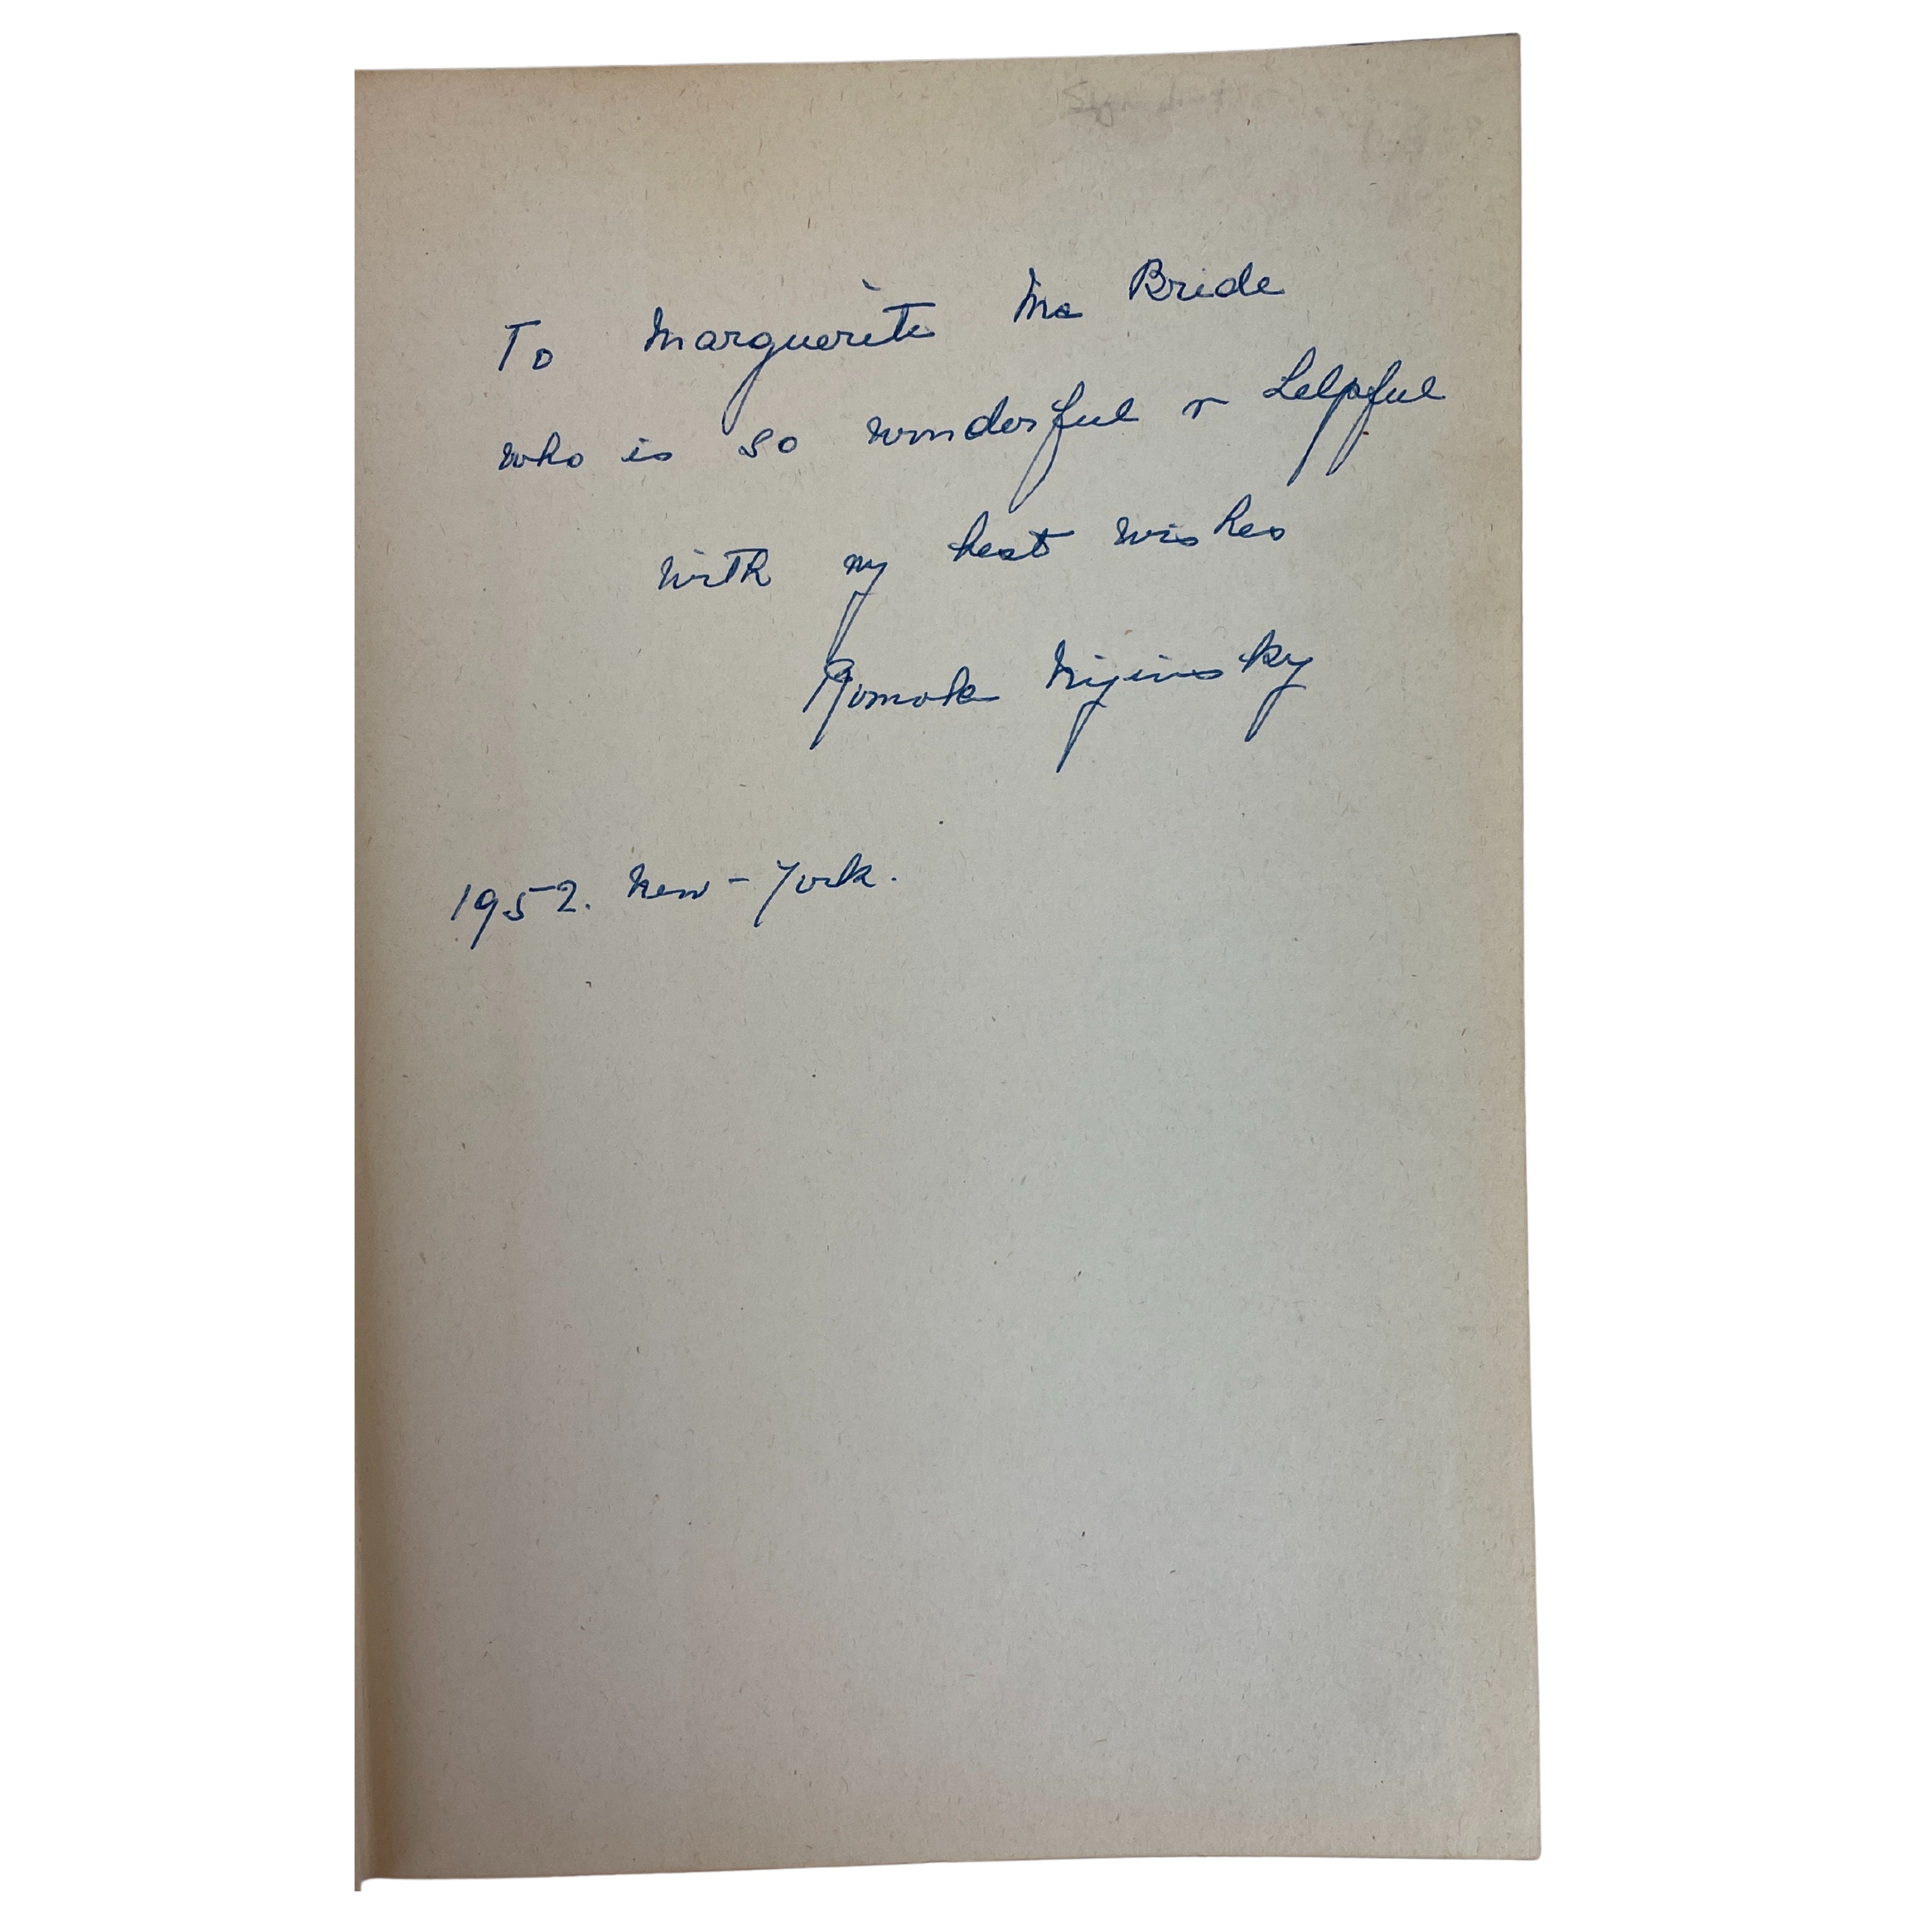 To Marguerite Mc Bride
who is so wonderful & helpful
with my best wishes
Romola Nijinsky
1952. New-York.